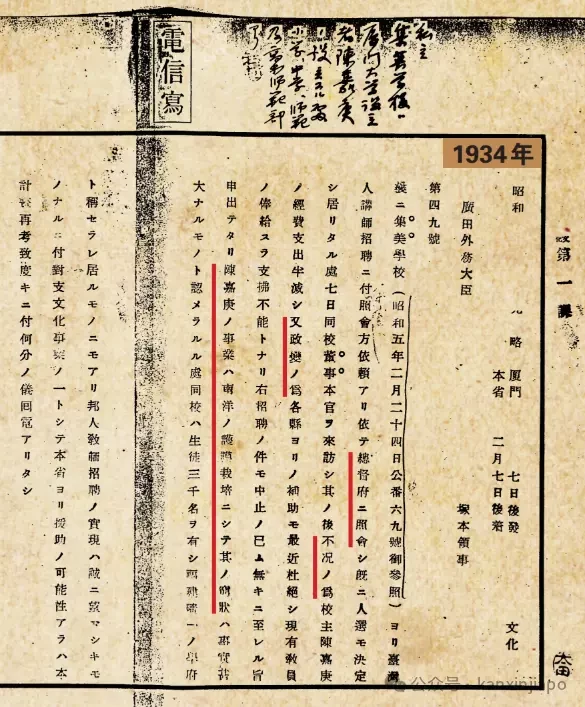 私立
集美学校ハ
者陳嘉庚
電信寫
1934年
第一課
昭和 略 厦門 七日後發
本省 二月七日後着
文化
廣田外務大臣 塚本領事
第四九號
ニ集美學校(昭和五年二月二十四日公番六九號御參照)ヨリ臺灣
人講師招聘ニ付照會方依頼アリ依テ總督府ニ照會シ既ニ人選モ決定
シ居リタル處七日同校董事本官ヲ來訪シ其ノ後不況ノ爲校主陳嘉庚
ノ經費支出半減シ又政變ノ爲各縣ヨリノ補助モ最近杜絶シ現有教員
ノ俸給スラ支拂不能トナリ右招聘ノ件モ中止ノ已ム無キニ至レル旨
申出テタリ陳嘉庚ノ事業ハ南洋ノ護謨栽培ニシテ其ノ窮狀ハ事實甚
大ナルモノト認メラルル處同校ハ生徒三千名ヲ有シ唯一ノ學府
ト稱セラレ居ルモノニモアリ邦人教師招聘ノ實現ハ誠ニ望マシキモ
ノナルニ付對支文化事業ノ一トシテ本省ヨリ援助ノ可能性アラハ本
計畫再考致度キニ付何分ノ儀回電アリタシ
公众号・kanxinjiapo